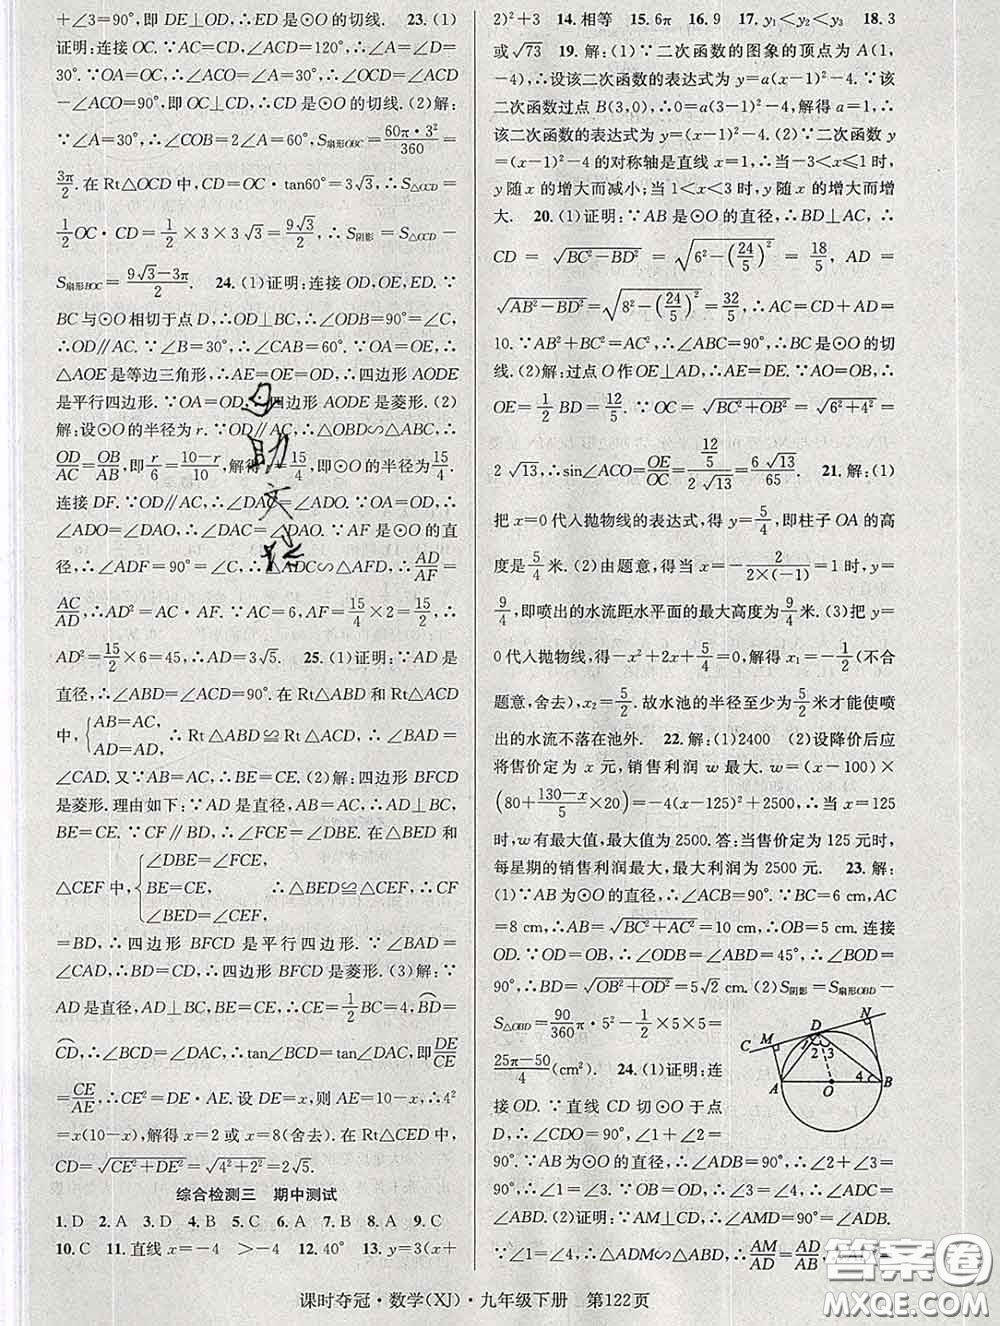 +∠D=90°,即DE⊥OD,∴ED是⊙O的切线. 23.(1)
证明:连接OC.∵AC=CD,∠ACD=120°,∴∠A=∠D=
30°.∵OA=OC,∴∠ACO=∠A=30°,∴∠OCD=∠ACD
-∠ACO=90°,即OC⊥CD,∴CD是⊙O的切线.(2)解:
∵∠A=30°,∴∠COB=2∠A=60°,∴S扇形OBC=60π·3²/360=
3π/2.在Rt△OCD中,CD=OC·tan60°=3√3,∴S△OCD=
1/2 OC·CD=1/2×3×3√3=9√3/2,∴S阴影=S△OCD-
S扇形BOC=(9√3-3π)/2. 24.(1)证明:连接OD,OE,ED.∵
BC与⊙O相切于点D,∴OD⊥BC,∴∠ODB=90°=∠C,
∴OD∥AC.∵∠B=30°,∴∠CAB=60°.∵OA=OE,∴
△AOE是等边三角形,∴AE=OE=OD,∴四边形AODE
是平行四边形.∵OA=OD,∴四边形AODE是菱形.(2)
解:设⊙O的半径为r.∵OD∥AC,∴△OBD∽△ABC,∴
OD/AC=OB/AB,即r/6=(10-r)/10,解得r=15/4,即⊙O的半径为15/4.
连接DF.∵OD∥AC,∴∠DAC=∠ADO.∵OA=OD,∴
∠ADO=∠DAO,∴∠DAC=∠DAO.∵AF是⊙O的直
径,∴∠ADF=90°=∠C,∴△ADC∽△AFD,∴AD/AF=
AC/AD,∴AD²=AC·AF.∵AC=6,AF=15/4×2=15/2,∴
AD²=15/2×6=45,∴AD=3√5. 25.(1)证明:∵AD是
直径,∴∠ABD=∠ACD=90°.在Rt△ABD和Rt△ACD
中,{AB=AC, AD=AD, ∴Rt△ABD≌Rt△ACD,∴∠BAD=
∠CAD.又∵AB=AC,∴BE=CE.(2)解:四边形BFCD
是菱形.理由如下:∵AD是直径,AB=AC,∴AD⊥BC,BE
=CE.∵CF∥BD,∴∠FCE=∠DBE.在△BED和
△CEF中,{∠DBE=∠FCE, BE=CE, ∠BED=∠CEF, ∴△BED≌△CEF,∴CF
=BD,∴四边形BFCD是平行四边形.∵∠BAD=
∠CAD,∴BD=CD,∴四边形BFCD是菱形.(3)解:∵
AD是直径,AD⊥BC,BE=CE,∴CE=1/2BC=4,BD=
CD,∴∠BCD=∠DAC,∴tan∠BCD=tan∠DAC,即DE/CE
=CE/AE,∴CE²=DE·AE.设DE=x,则AE=10-x,∴4²
=x(10-x),解得x=2或x=8(舍去).在Rt△CED中,
CD=√(CE²+DE²)=√(4²+2²)=2√5.
综合检测三 期中测试
1.D 2.A 3.D 4.B 5.C 6.A 7.B 8.A 9.C
10.C 11.直线x=-4 >-4 12.40° 13.y=3(x+
2)²+3 14.相等 15.6π 16.9 17.y₁<y₂<y₃ 18.3
或√73 19.解:(1)∵二次函数的图象的顶点为A(1,
-4),∴设该二次函数的表达式为y=a(x-1)²-4.∵该
二次函数过点B(3,0),∴0=a(3-1)²-4,解得a=1,∴
该二次函数的表达式为y=(x-1)²-4.(2)∵二次函数y
=(x-1)²-4的对称轴是直线x=1,∴当-3<x≤1时,
y随x的增大而减小;当1<x<3时,y随x的增大而增
大. 20.(1)证明:∵AB是⊙O的直径,∴BD⊥AC,∴
CD=√(BC²-BD²)=√(6²-(24/5)²)=18/5,AD=
√(AB²-BD²)=√(8²-(24/5)²)=32/5,∴AC=CD+AD=
10.∵AB²+BC²=AC²,∴∠ABC=90°,∴BC是⊙O的切
线.(2)解:过点O作OE⊥AD,∴AE=DE.∵AO=OB,∴
OE=1/2 BD=12/5.∵OC=√(BC²+OB²)=√(6²+4²)=
2√13,∴sin∠ACO=OE/OC=(12/5)/(2√13)=6√13/65. 21.解:(1)
把x=0代入抛物线的表达式,得y=5/4,即柱子OA的高
度是5/4米.(2)由题意,得当x=-2/(2×(-1))=1时,y=
9/4,即喷出的水流距水平面的最大高度为9/4米.(3)把y=
0代入抛物线,得-x²+2x+5/4=0,解得x₁=-1/2(不合
题意,舍去),x₂=5/2.故水池的半径至少为5/2米才能使喷
出的水流不落在池外. 22.解:(1)2400 (2)设降价后应
将售价定为x元,销售利润w最大.w=(x-100)×
(80+(130-x)/5×20)=-4(x-125)²+2500,∴当x=125
时,w有最大值,最大值为2500.答:当售价定为125元时,
每星期的销售利润最大,最大利润为2500元. 23.解:
(1)∵AB为⊙O的直径,∴∠ACB=90°.∵BC=6 cm,AC
=8 cm,∴AB=√(BC²+AC²)=10 cm,∴OB=5 cm.连接
OD.∵OD=OB,∴∠ODB=∠ABD=45°,∴∠BOD=
90°,∴BD=√(OB²+OD²)=5√2 cm.(2)S阴影=S扇形OBD-
S△OBD=90/360π·5²-1/2×5×5=
(25π-50)/4(cm²). 24.(1)证明:连
接OD.∵直线CD切⊙O于点
D,∴∠CDO=90°,∴∠1+∠2=
90°.∵AB为⊙O的直径,∴∠ADB=90°,∴∠2+∠3=
90°,∴∠1=∠3.∵OB=OD,∴∠3=∠4,∴∠ADC=
∠ABD.(2)证明:∵AM⊥CD,∴∠AMD=90°=∠ADB.
∵∠1=∠4,∴△ADM∽△ABD,∴AM/AD=AD/AB,∴AD²=
C M D N 1 2 3 4 A O B
自助文轩
答案圈
课时夺冠·数学(XJ)·九年级下册 第122页